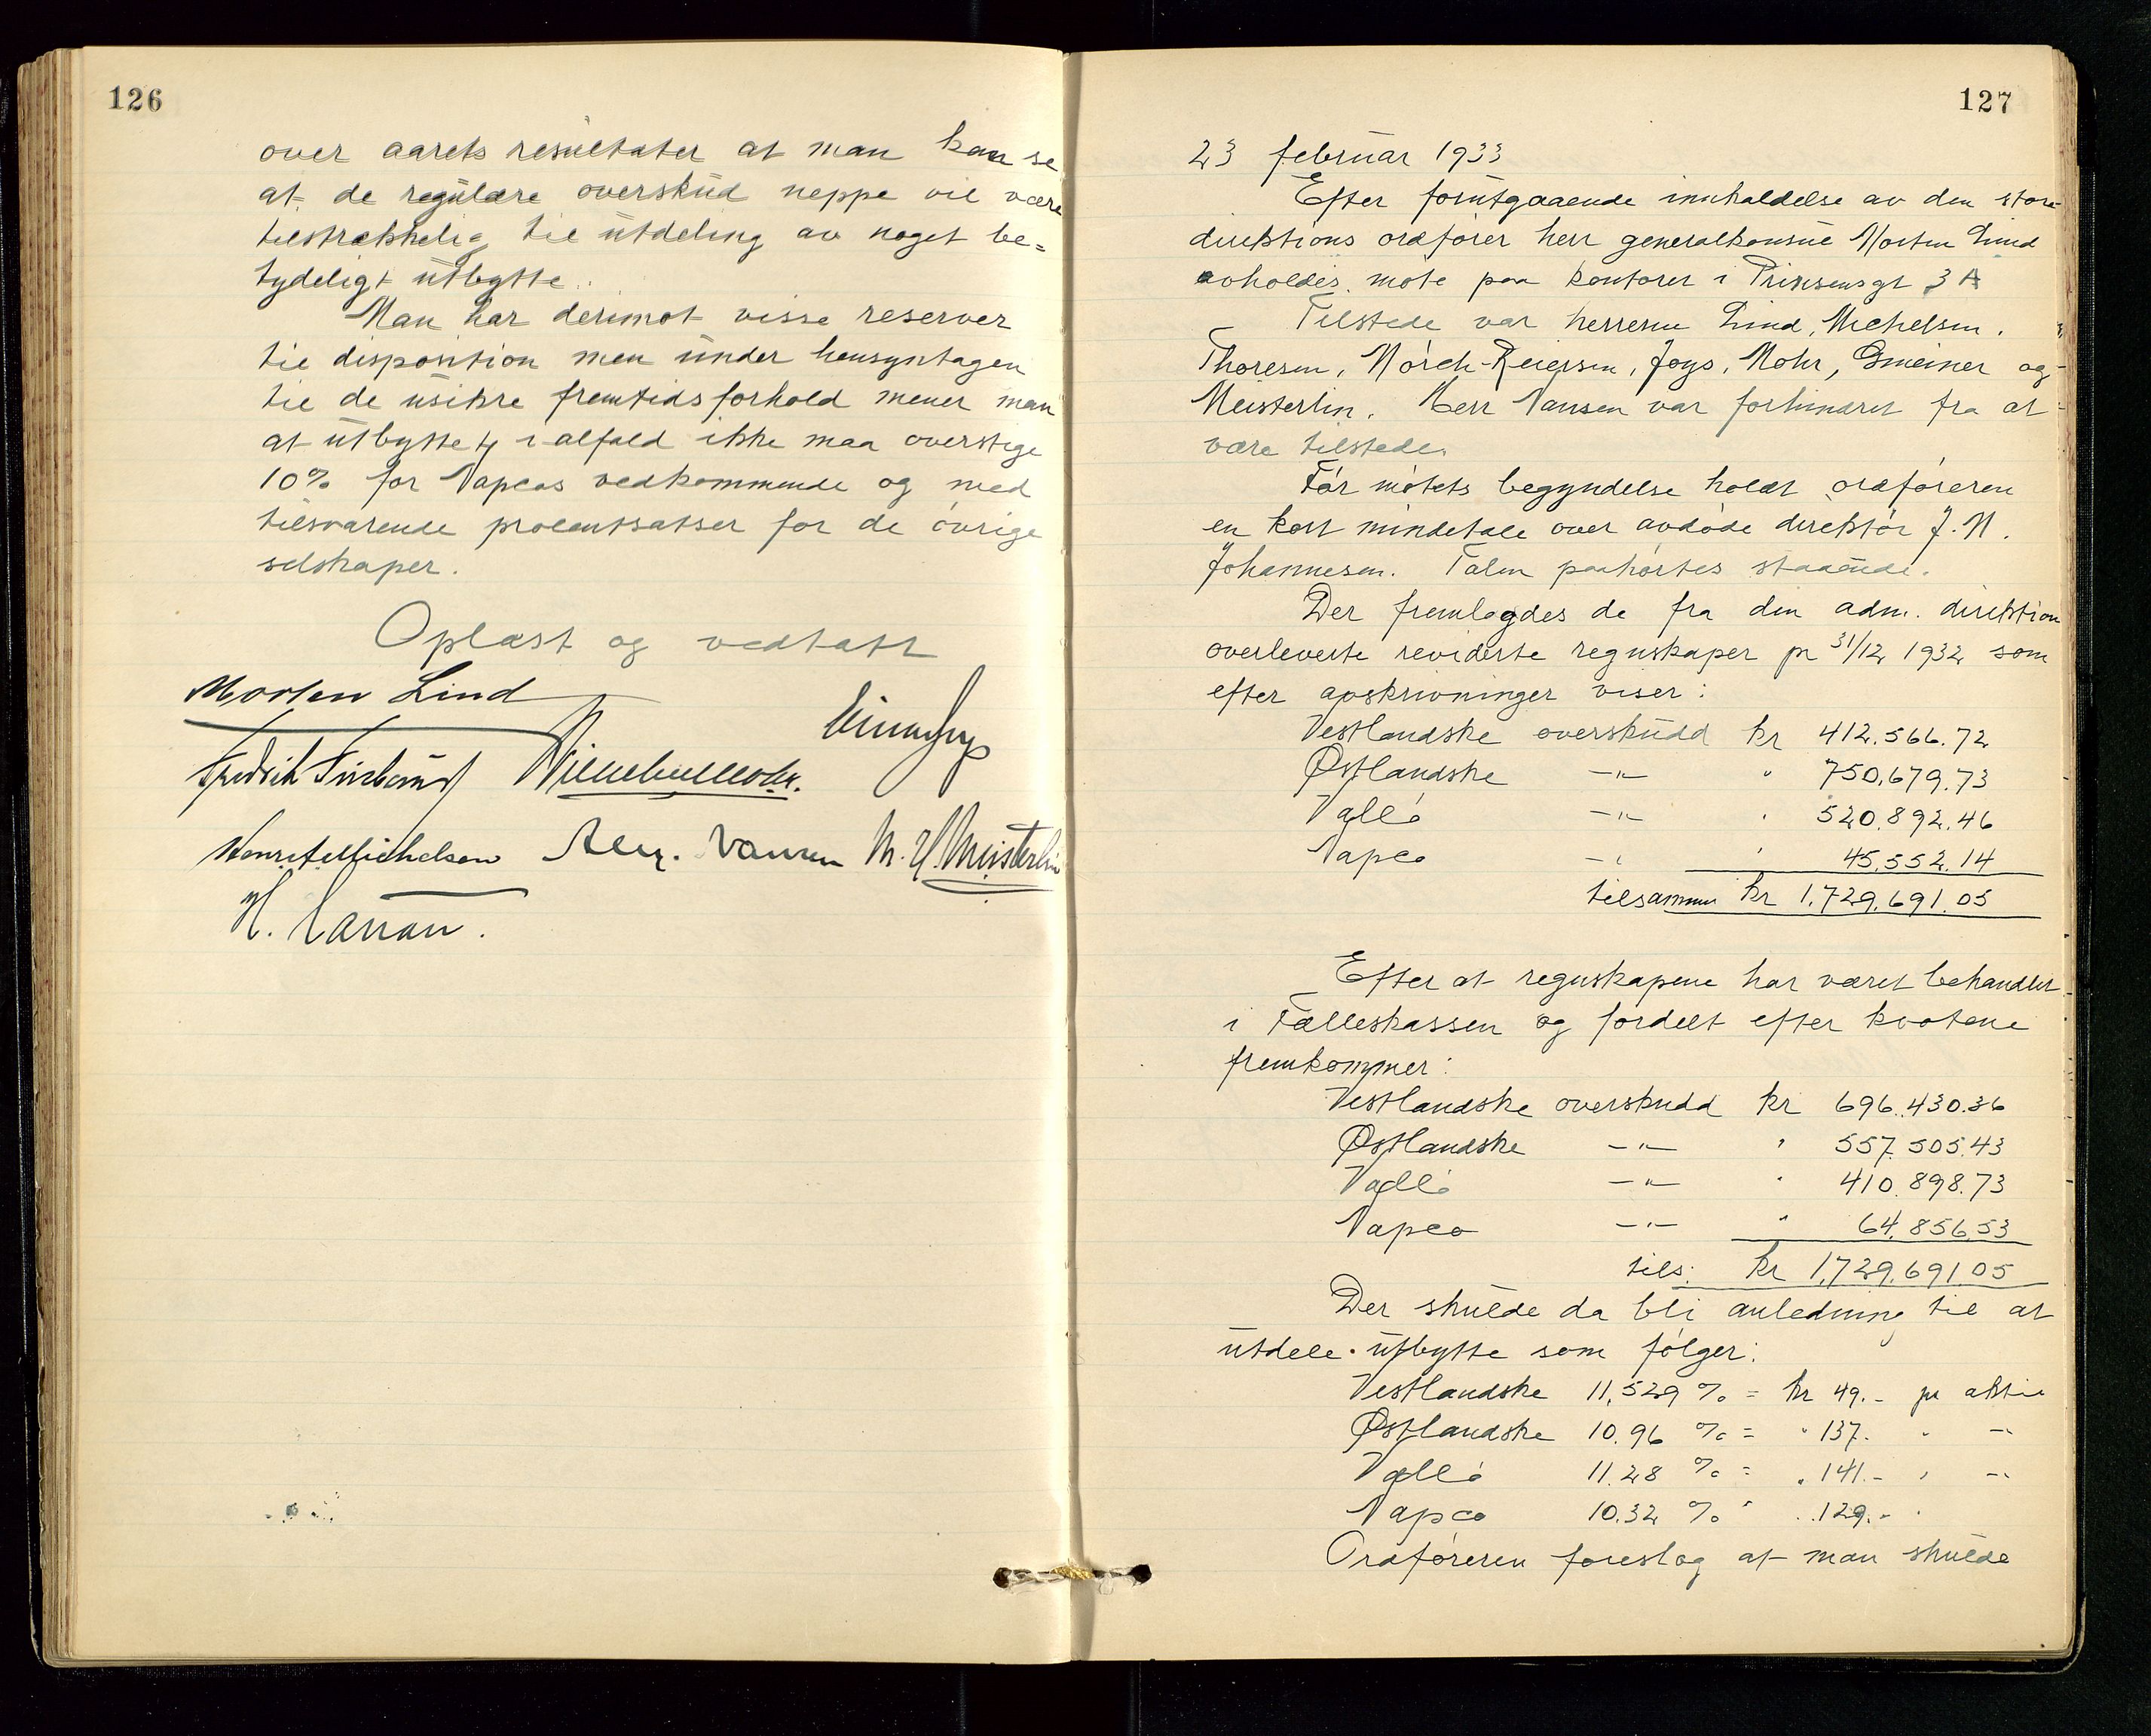 126
over aarets resultater at man kan se
at de regulære overskud neppe vil være
tilstrækkelig til utdeling av noget be=
tydeligt utbytte.
Man har derimot visse reserver
til disposition men under hensyntagen
til de usikre fremtidsforhold mener man
at utbyttet i alfald ikke maa overstige
10% for Vapcos vedkommende og med
tilsvarende procentsatser for de övrige
selskaper.
Oplæst og vedtatt
Morten Lind
Henr. A. Michelsen Alex. Nansen M. H. Meisterlin
127
23 februar 1933
Efter forutgaaende innkaldelse av den store
direktions ordförer herr generalkonsul Morten Lind
avholdes möte paa kontoret i Prinsensgt 3 A
Tilstede var herrerne Lind, Michelsen.
Thoresen, Mörch-Reiersen, Joys, Mohr, Gmeiner og
Meisterlin. Herr Nansen var forhindret fra at
være tilstede.
Før mötets begyndelse holdt ordföreren
en kort mindetale over avdöde direktör J. N.
Johannesen. Talen paahörtes staaende.
Der fremlagdes de fra den adm. direktion
overleverte reviderte regnskaper pr 31/12 1932 som
efter avskrivninger viser:
Vestlandske overskudd kr 412.566.72
Østlandske —"— " 750.679.73
Vallö —"— " 520.892.46
Vapco —"— " 45.552.14
tilsammen kr 1.729.691.05
Efter at regnskapene har været behandlet
i Fælleskassen og fordelt efter kvotene
fremkommer:
Vestlandske overskudd kr 696.430.36
Østlandske —"— " 557.505.43
Vallö —"— " 410.898.73
Vapco —"— " 64.856.53
tils: kr 1.729.691.05
Der skulde da bli anledning til at
utdele utbytte som fölger:
Vestlandske 11,529 % = kr 49.- pr aktie
Østlandske 10.96 % = " 137.- " —"
Vallö 11.28 % = " 141.- " —"
Vapco 10.32 % " " 129.- "
Ordföreren foreslog at man skulde